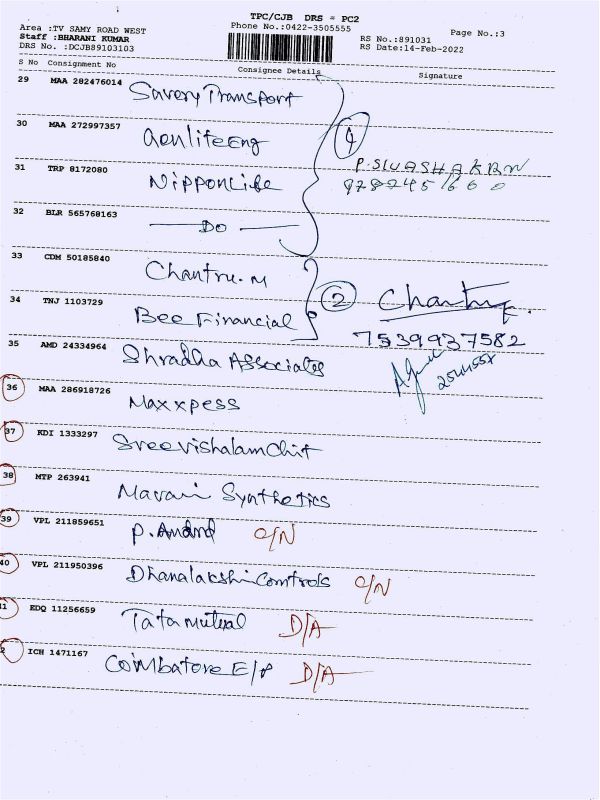 TPC/CJB DRS = PC2
Area :TV SAMY ROAD WEST Phone No.:0422-3505555 Page No.:3
Staff :BHARANI KUMAR RS No.:891031
DRS No. :DCJB89103103 RS Date:14-Feb-2022
S No Consignment No Consignee Details Signature
29 MAA 282476014 Savery Transport
30 MAA 272997357 Aenlife Eng 4
P. SIVASHAKRN
31 TRP 8172080 Nippon Life
32 BLR 565768163 DO
33 CDM 50185840 Chantru. M
34 TNJ 1103729 Bee Financial 2
7539937582
35 AMD 24334964 Shradha Associates
36 MAA 286918726 Maxxpess
37 KDI 1333297 Sreevishalam Chit
38 MTP 263941 Synthetics
39 VPL 211859651 P. Anand O/N
40 VPL 211950396 Dhanalakshi Comtrols O/N
1 EDQ 11256659 Tata mutual D/A
2 ICH 1471167 Coimbatore E/P D/A